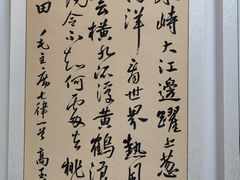 峙大江邊躍上葱
洋看世界熱風
雲横九派浮黄鶴浪
陶令不知何處去桃
田
毛主席七律